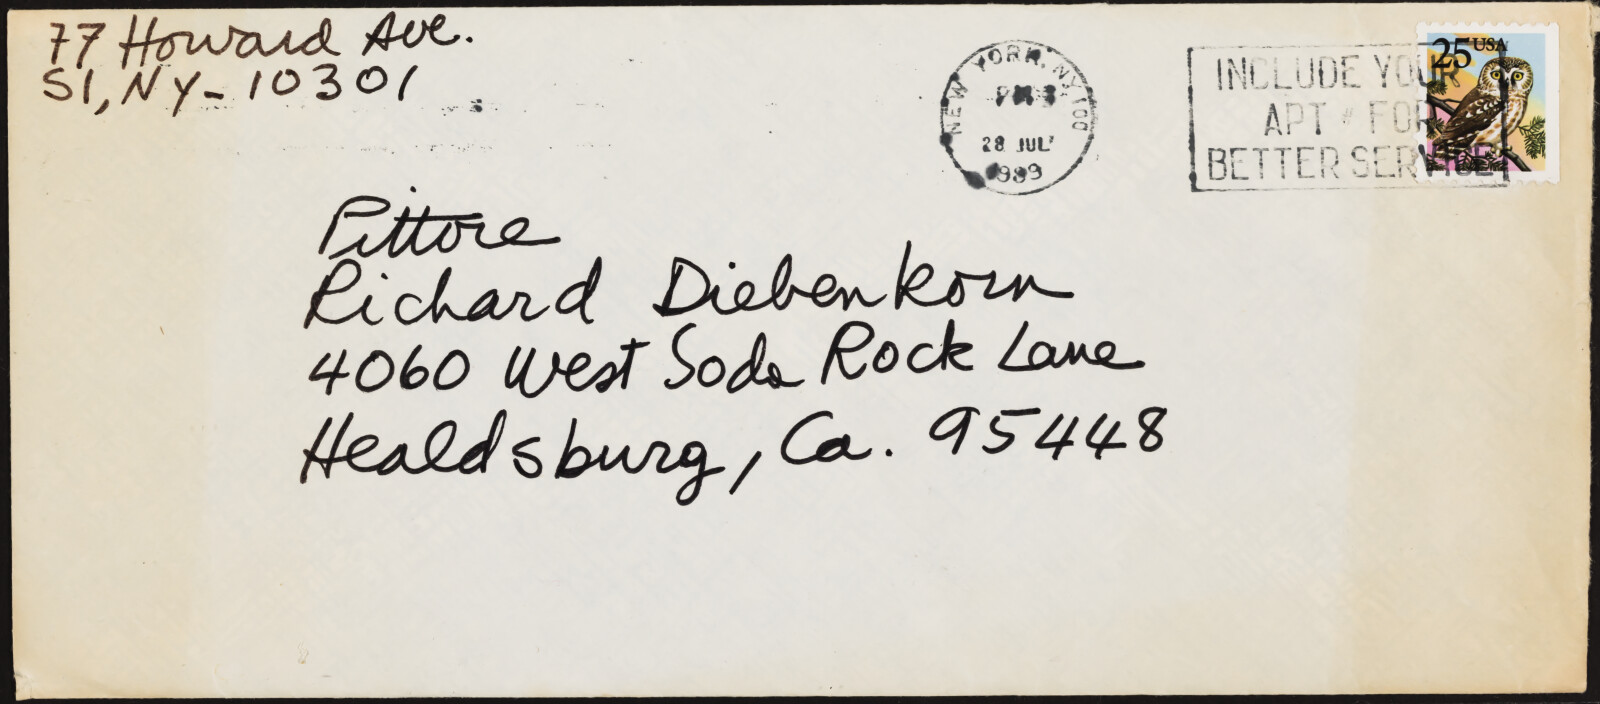 77 Howard Ave.
SI, NY - 10301
NEW YORK, NY 100
PM
28 JUL
1989
INCLUDE YOUR
APT # FOR
BETTER SERVICE
25 USA
Pittore
Richard Diebenkorn
4060 West Soda Rock Lane
Healdsburg, Ca. 95448